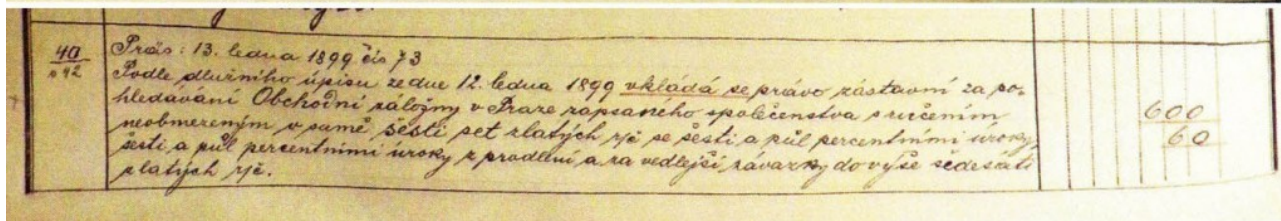 40
Präs: 13. ledna 1899 čís 73
Podle dlužního úpisu ze dne 12. ledna 1899 vkládá se právo zástavní za po-
hledávání Obchodní záložny v Praze zapsaného společenstva s ručením
neobmezeným v samě šesti set zlatých rč se šesti a půl percentními úroky,
šesti a půl percentními úroky z prodlení a za vedlejší závazky do výše šedesáti
zlatých rč.
600
60